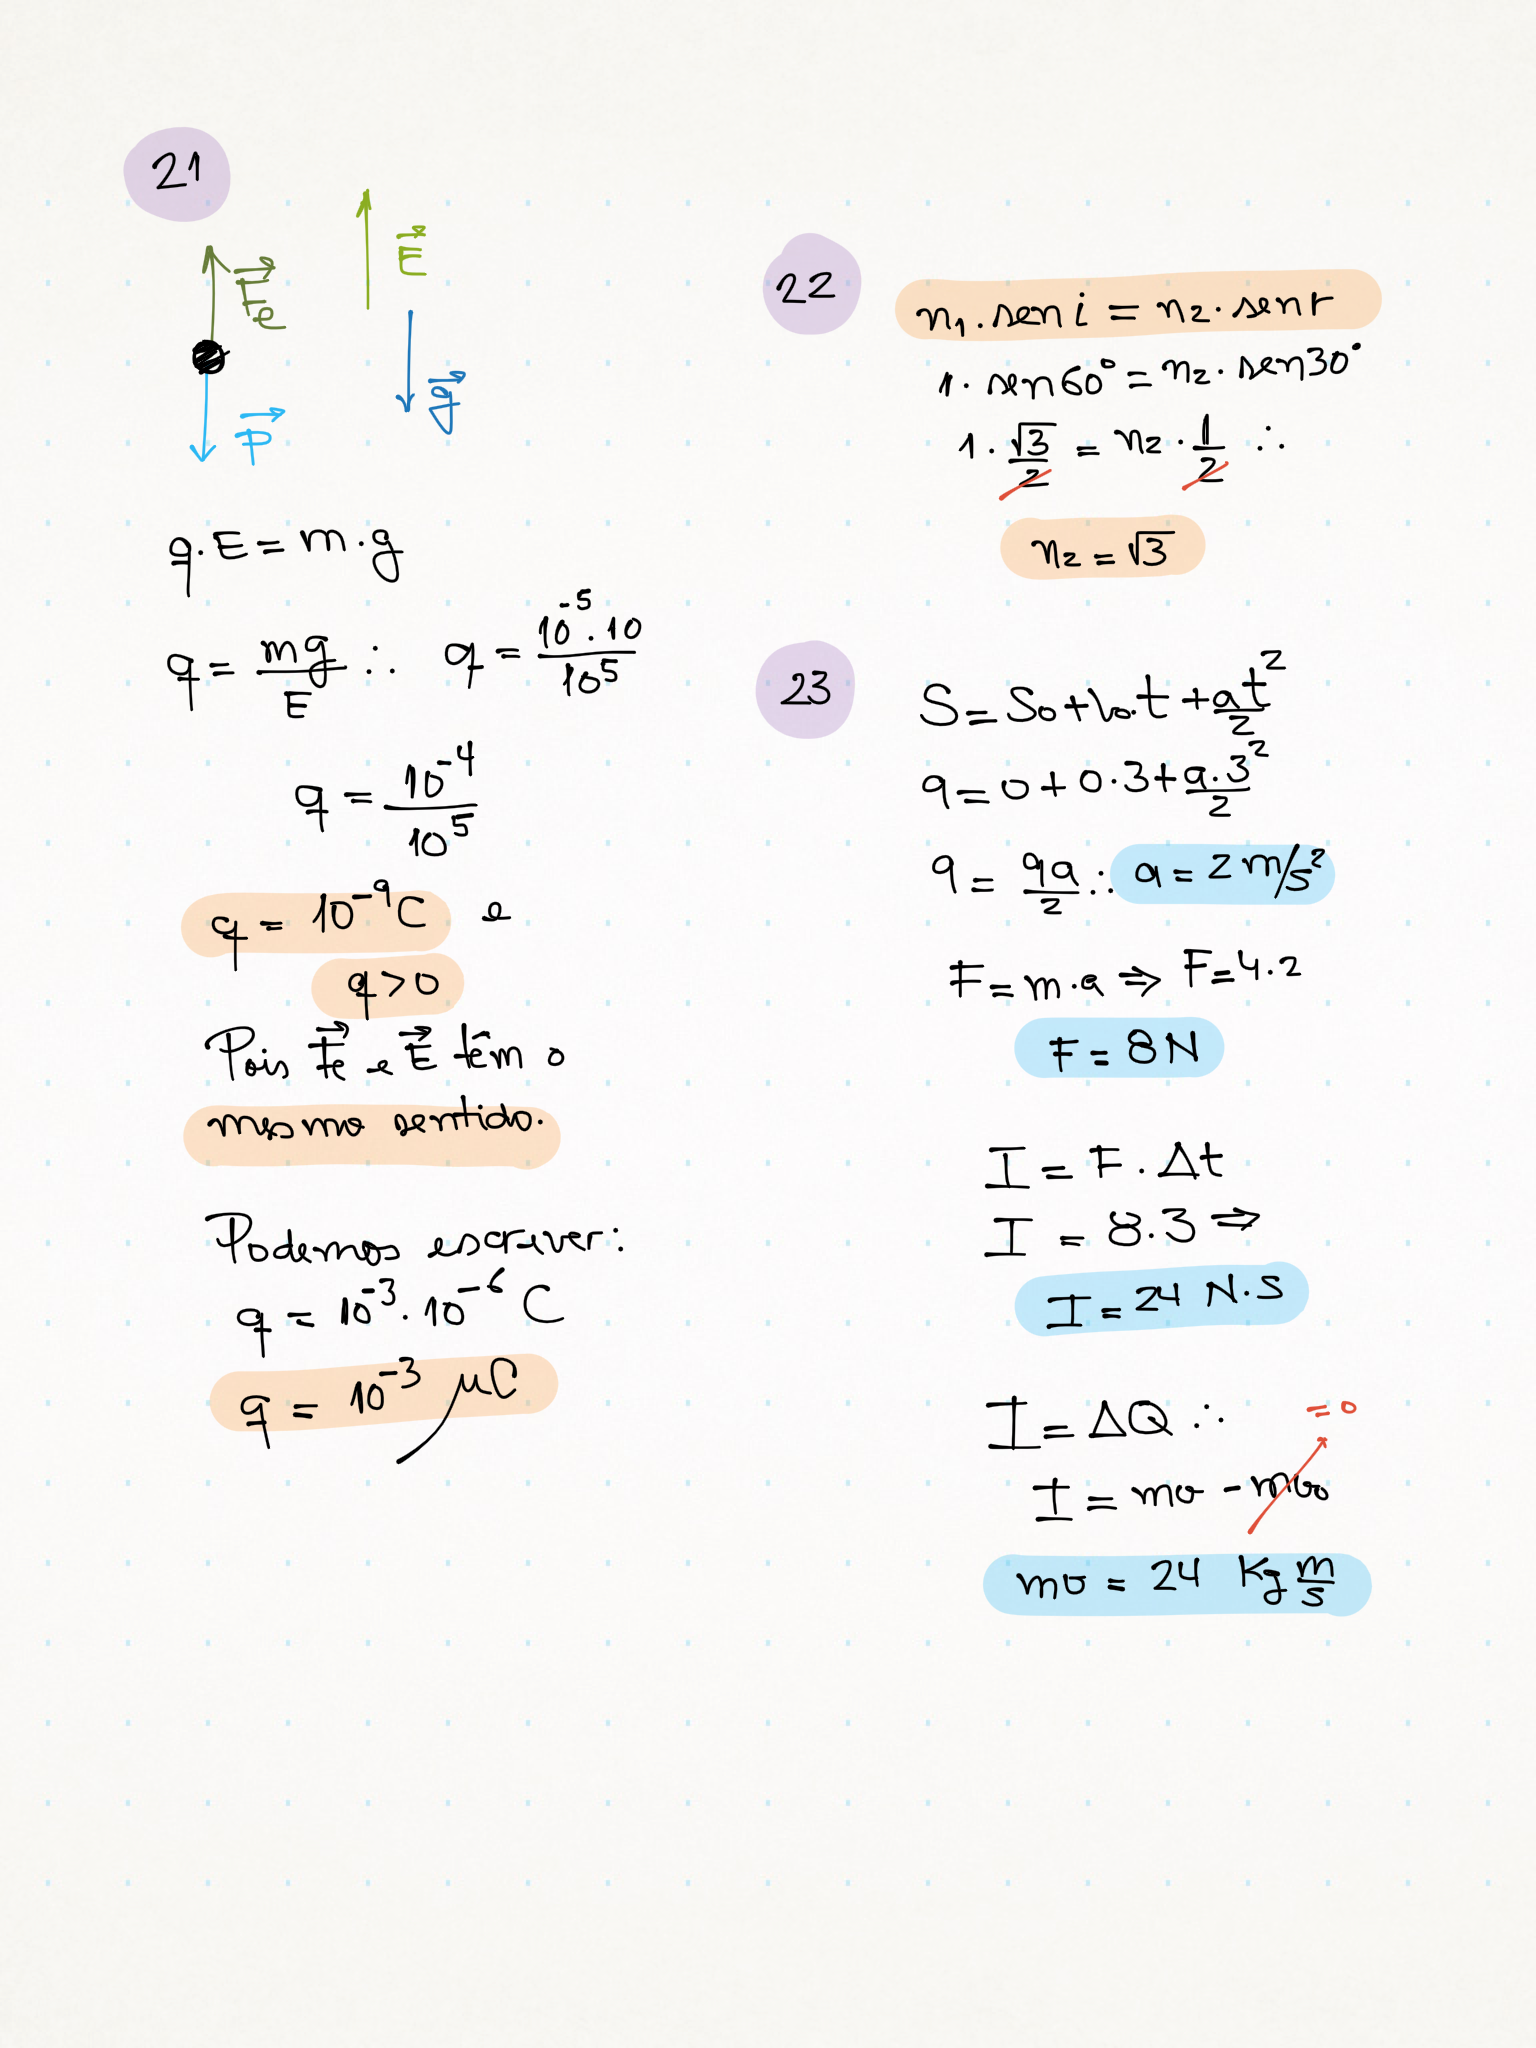 21
F⃗e
E⃗
g⃗
P⃗
q·E = m·g
q = mg/E ∴ q = 10⁻⁵·10/10⁵
q = 10⁻⁴/10⁵
q = 10⁻⁹ C e
q > 0
Pois F⃗e e E⃗ têm o
mesmo sentido.
Podemos escrever:
q = 10⁻³·10⁻⁶ C
q = 10⁻³ μC
22
n₁·sen i = n₂·sen r
1·sen60° = n₂·sen30°
1·√3/2 = n₂·1/2 ∴
n₂ = √3
23
S = S₀ + v₀·t + at²/2
9 = 0 + 0·3 + a·3²/2
9 = 9a/2 ∴ a = 2 m/s²
F = m·a ⇒ F = 4·2
F = 8N
I = F·Δt
I = 8·3 ⇒
I = 24 N·S
I = ΔQ ∴ = 0
I = mv - mv₀
mv = 24 Kg m/s